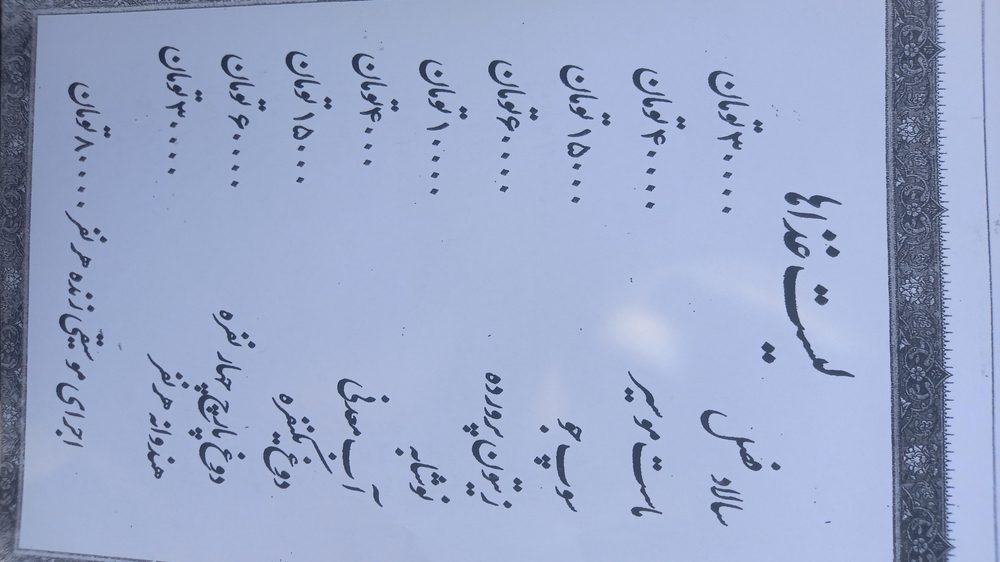 لیست غذاها
سالاد فصل ۳۰۰۰۰ تومان
ماست موسیر ۴۰۰۰۰ تومان
سوپ جو ۱۵۰۰۰ تومان
زیتون پرورده ۶۰۰۰۰ تومان
نوشابه ۱۰۰۰۰ تومان
آب معدنی ۴۰۰۰ تومان
دوغ یکنفره ۱۵۰۰۰ تومان
دوغ پارچ چهار نفره ۶۰۰۰۰ تومان
هندوانه هر نفر ۳۰۰۰۰ تومان
اجرای موسیقی زنده هر نفر ۸۰۰۰۰ تومان